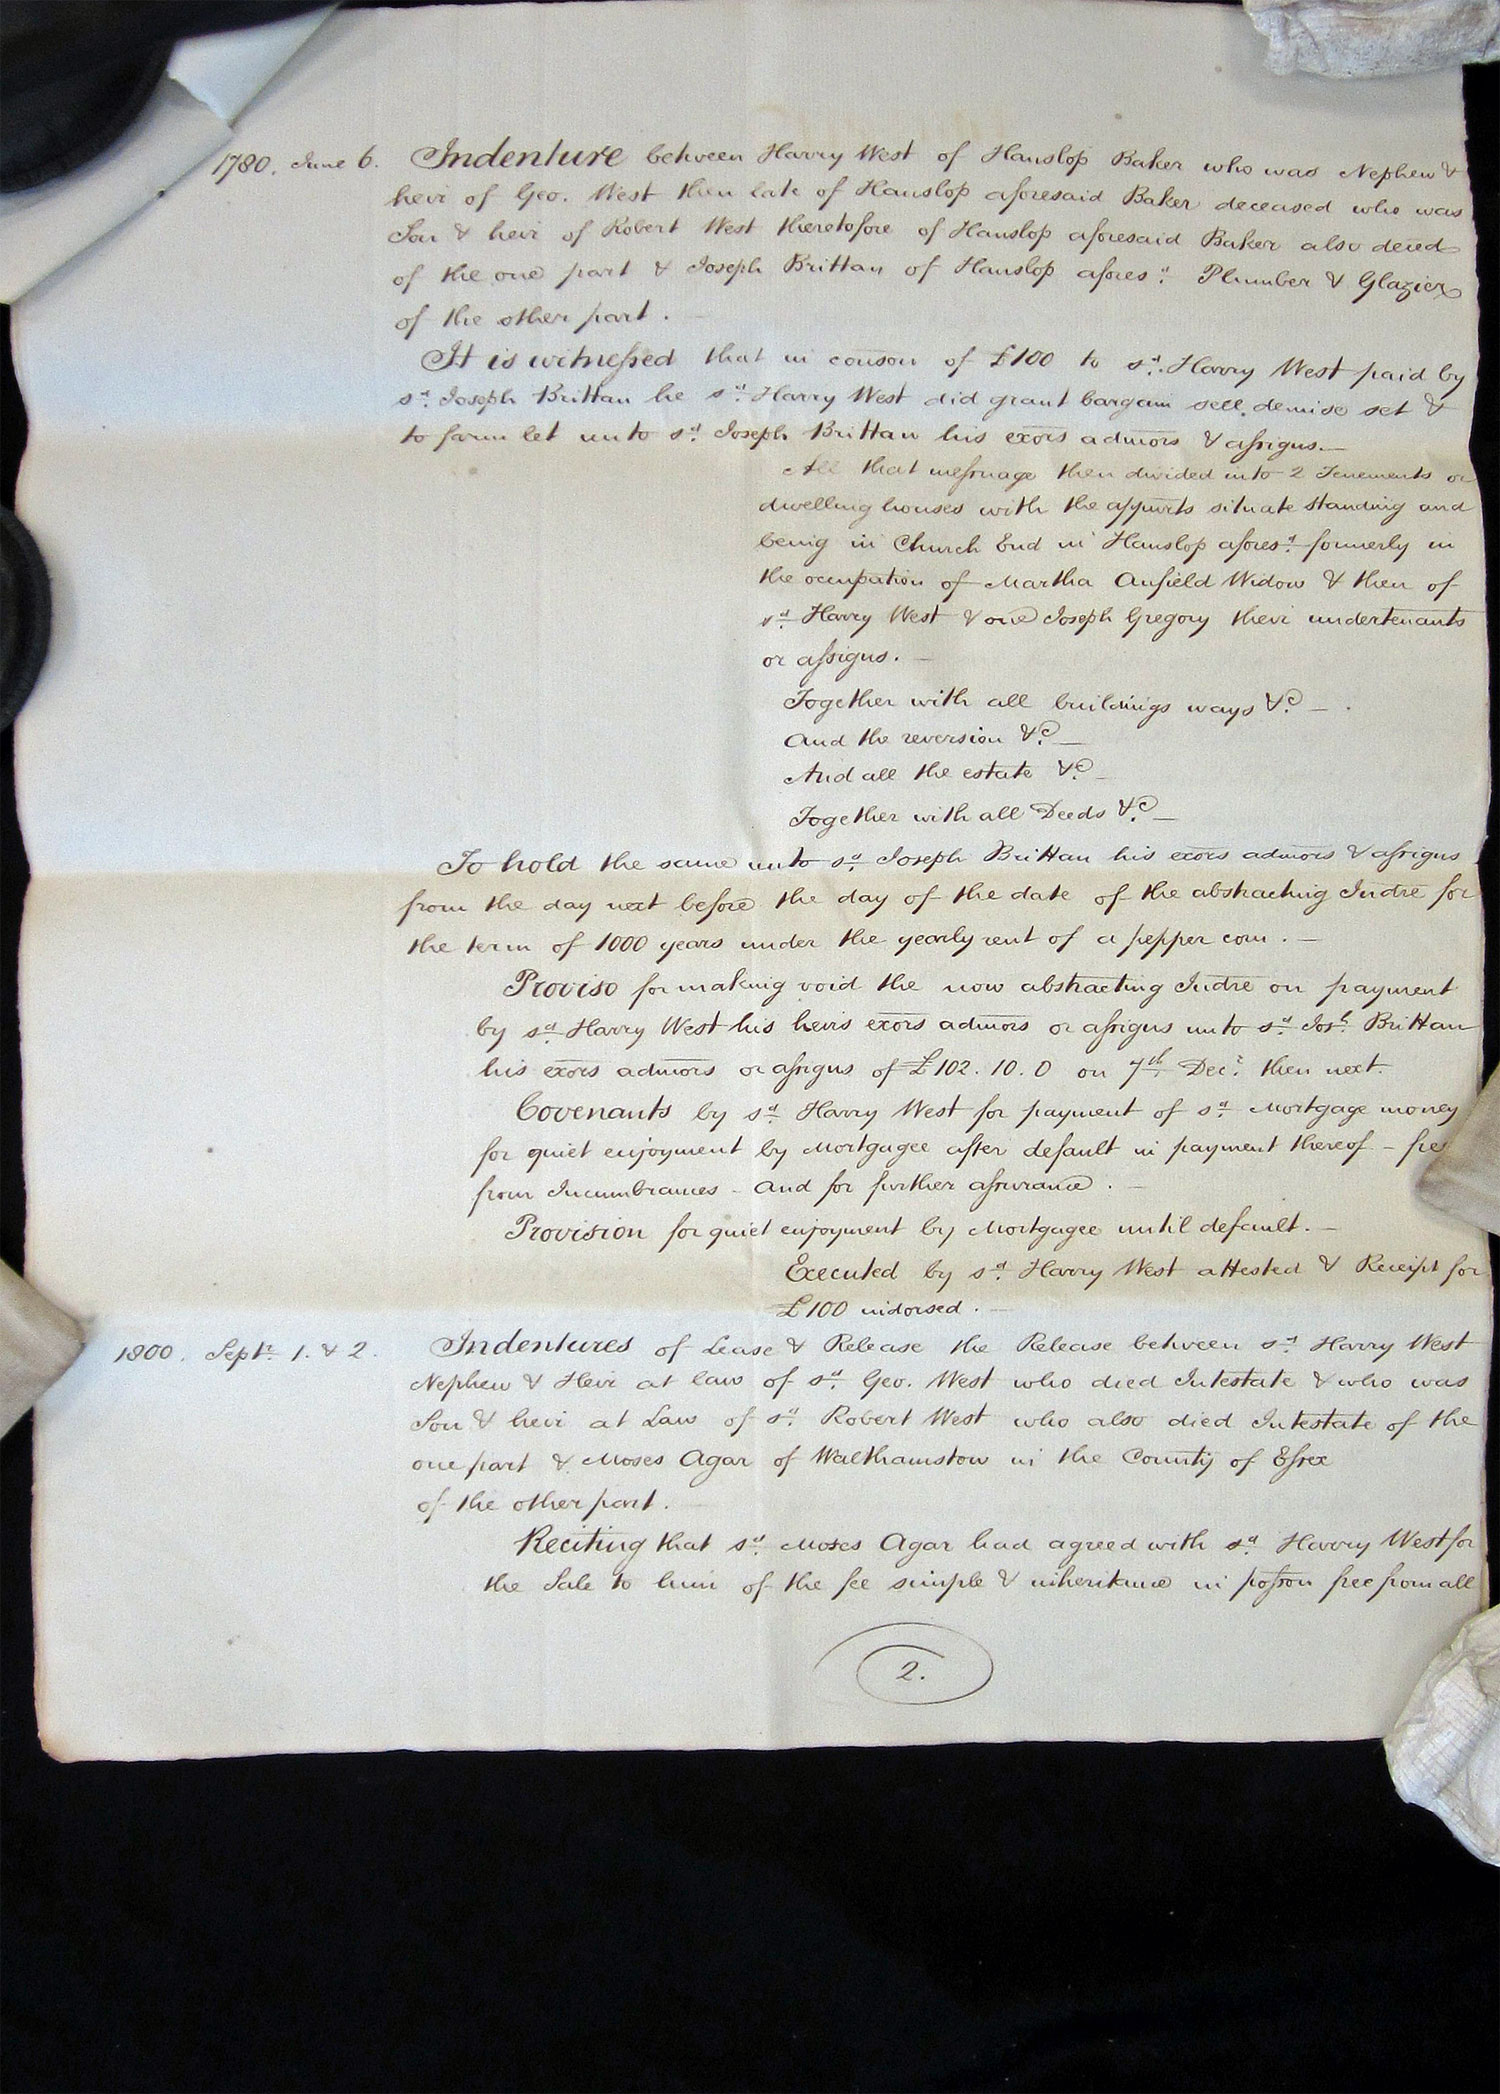 1780. June 6. Indenture between Harry West of Hanslop Baker who was Nephew &
heir of Geo. West then late of Hanslop aforesaid Baker deceased who was
Son & heir of Robert West theretofore of Hanslop aforesaid Baker also deced
of the one part & Joseph Brittan of Hanslop afores.d Plumber & Glazier
of the other part.
It is witnessed that in conson of £100 to s.d Harry West paid by
s.d Joseph Brittan he s.d Harry West did grant bargain sell demise set &
to farm let unto s.d Joseph Brittan his exors admors & assigns.
All that messuage then divided into 2 Tenements or
dwelling houses with the appurts situate standing and
being in Church End in Hanslop afores.d formerly in
the occupation of Martha Anfield Widow & then of
s.d Harry West & one Joseph Gregory their undertenants
or assigns.
Together with all buildings ways &c
And the reversion &c
And all the estate &c
Together with all Deeds &c
To hold the same unto s.d Joseph Brittan his exors admors & assigns
from the day next before the day of the date of the abstracting Indre for
the term of 1000 years under the yearly rent of a pepper corn.
Proviso for making void the now abstracting Indre on payment
by s.d Harry West his heirs exors admors or assigns unto s.d Jos.h Brittan
his exors admors or assigns of £102.10.0 on 7th Dec.r then next.
Covenants by s.d Harry West for payment of s.d Mortgage money
for quiet enjoyment by Mortgagee after default in payment thereof - free
from Incumbrances - and for further assurance.
Provision for quiet enjoyment by Mortgagee until default.
Executed by s.d Harry West attested & Receipt for
£100 indorsed.
1800. Sept.r 1. & 2. Indentures of Lease & Release the Release between s.d Harry West
Nephew & Heir at law of s.d Geo. West who died Intestate & who was
Son & heir at Law of s.d Robert West who also died Intestate of the
one part & Moses Agar of Walthamstow in the County of Essex
of the other part.
Reciting that s.d Moses Agar had agreed with s.d Harry West for
the Sale to him of the fee simple & inheritance in posson free from all
2.